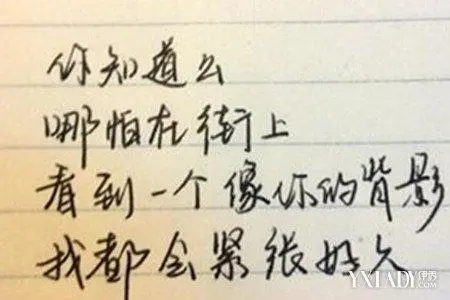 你知道么
哪怕在街上
看到一个像你的背影
我都会紧张好久
YXLADY伊秀
.COM